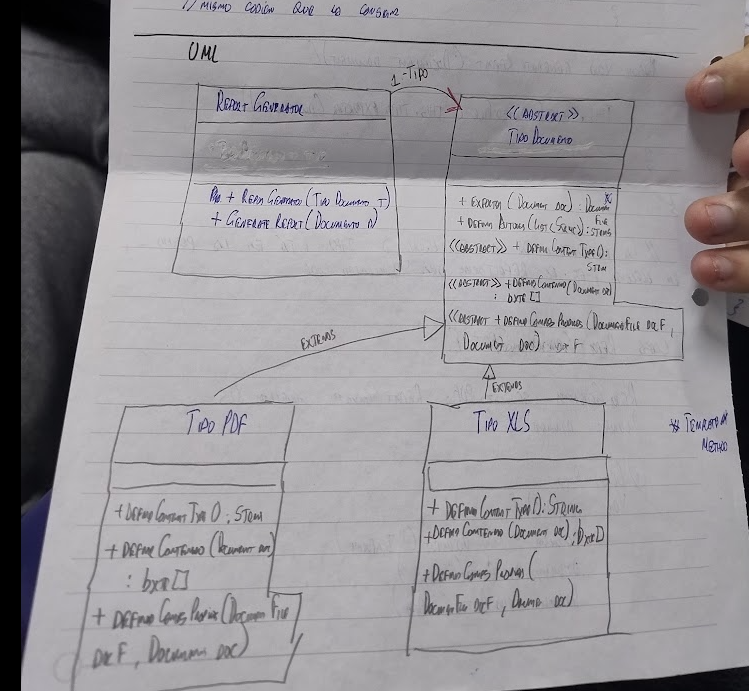 // MISMO CODIGO QUE LO CONSTRUIR
UML
1 - TIPO
REPORT GENERATOR
+ REPORT GENERATOR (TIPO DOCUMENTO T)
+ GENERATE REPORT (DOCUMENTO D)
<<ABSTRACT>>
TIPO DOCUMENTO
+ EXPORTAR (DOCUMENT DOC) : DOCUMENT
FILE
+ DEFINIR AUTORES (LIST<STRING>) : STRING
<<ABSTRACT>> + DEFINIR CONTENT TYPE () :
STRING
<<ABSTRACT>> + DEFINIR CONTENIDO (DOCUMENT DOC)
: byte []
<<ABSTRACT + DEFINIR CAMPOS PROPIOS (DOCUMENT FILE DOCF,
DOCUMENT DOC) DOCF
EXTENDS
EXTENDS
TIPO PDF
+ DEFINIR CONTENT TYPE () : STRING
+ DEFINIR CONTENIDO (DOCUMENT DOC)
: byte []
+ DEFINIR CAMPOS PROPIOS (DOCUMENT FILE
DOCF, DOCUMENT DOC)
TIPO XLS
+ DEFINIR CONTENT TYPE () : STRING
+ DEFINIR CONTENIDO (DOCUMENT DOC) : byte []
+ DEFINIR CAMPOS PROPIOS (
DOCUMENT FILE DOCF, DOCUMENT DOC)
** TEMPLATE
METHOD